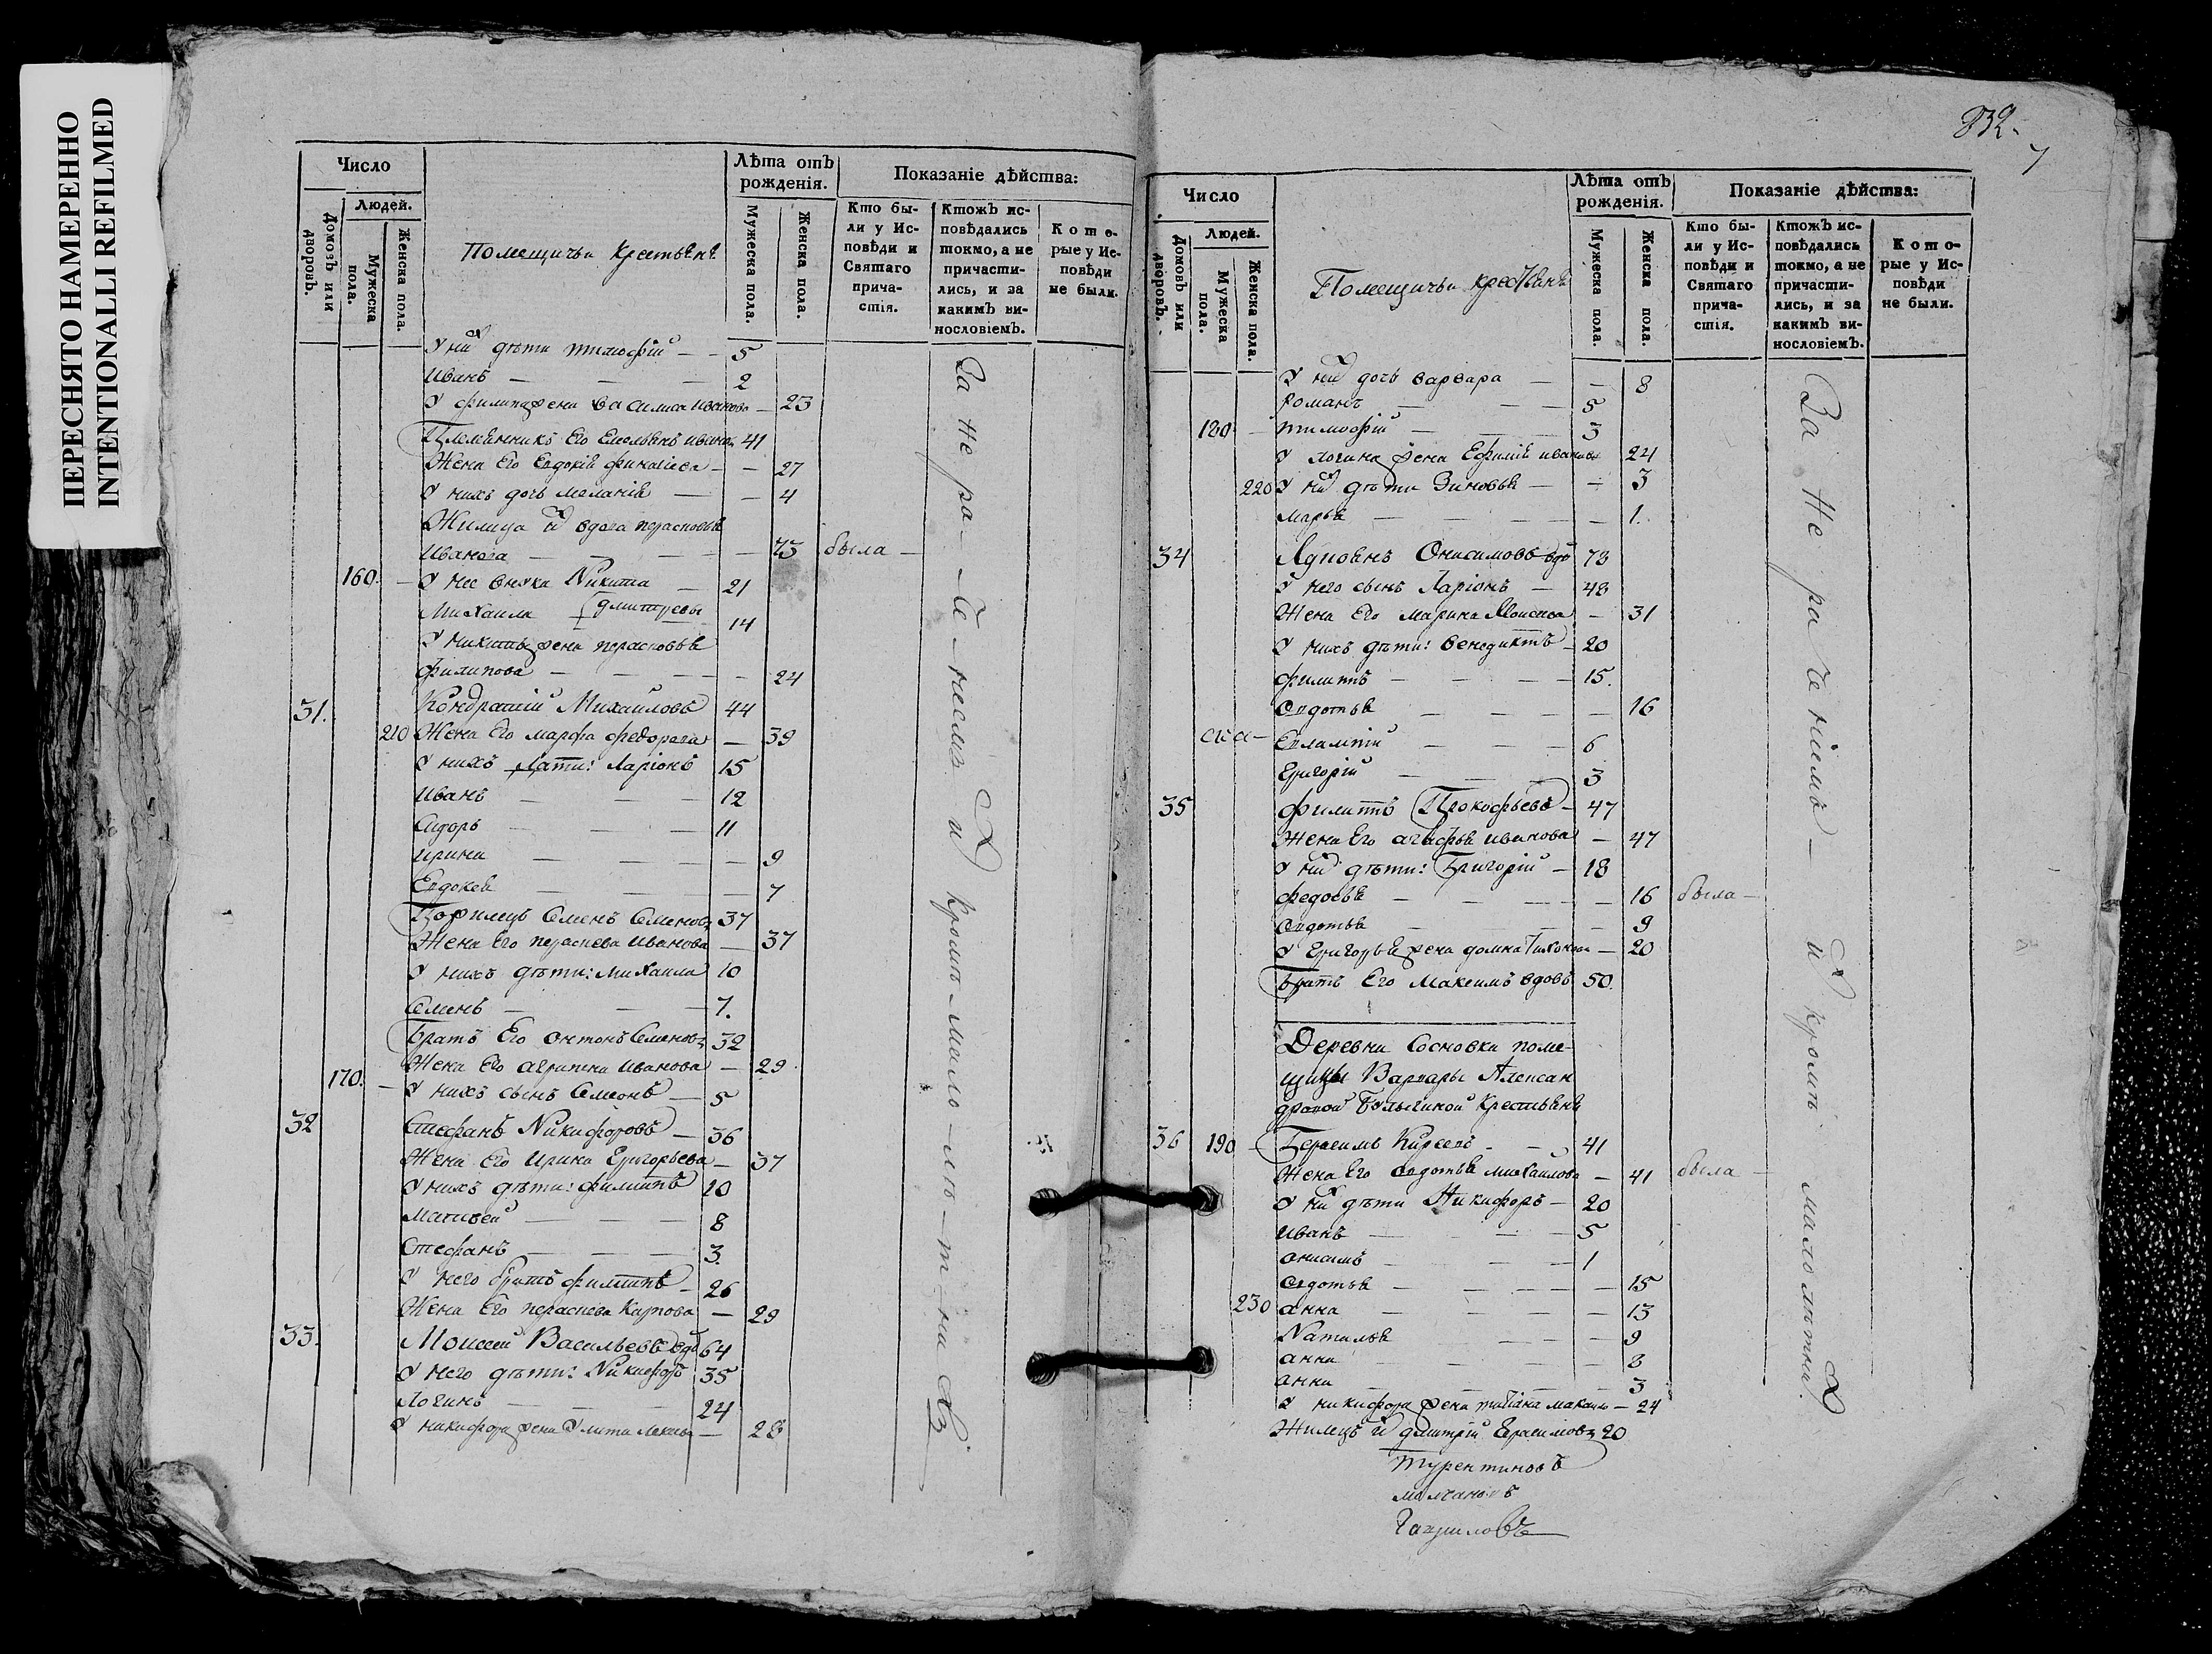 ПЕРЕСНЯТО НАМЕРЕННО
INTENTIONALLI REFILMED
Число
Людей.
Домовъ или дворовъ.
Мужеска пола.
Женска пола.
Помещичьи Крестьяне
Лѣта отъ рожденія.
Мужеска пола.
Женска пола.
Показаніе дѣйства:
Кто были у Исповѣди и Святаго причастія.
Ктожъ исповѣдались токмо, а не причастились, и за какимъ винословіемъ.
Которые у Исповѣди не были.
У ни дѣти тимофій — 5
Иванъ — 2
У филипа жена василиса иванова — 23
Племянникъ Его Емельянъ иванов 41
Жена Его Евдокія — 27
У нихъ дочь меланія — 4
Жилица вдова парасковья
Иванова — 73 была —
160. У нее внука Никита — 21
Михаила Дмитревы 14
У никиты жена парасковья
филипова — 24
31. Кондратій Михаиловъ 44
210 Жена Его марфа федорова — 39
У нихъ дѣти: Ларіонъ 15
Иванъ — 12
Сидоръ — 11
ирина — 9
Евдокея — 7
Семенъ Семеновъ 37
Жена Его Иванова — 37
У нихъ дѣти: михаила 10
Семенъ — 7.
Братъ Его антонъ Семеновъ 32
Жена Его Иванова — 29
170. У нихъ сынъ Семіонъ — 5
32 Стефанъ Никифоровъ — 36
Жена Его Ирина Григорьева — 37
У нихъ дѣти: филиппъ 10
Матвей — 8
Стефанъ — 3.
У него братъ филиппъ — 26
Жена Его Карпова — 29
33. Моисей Васильевъ вдов 64
У него дѣти: Никифоръ 35
Логинъ — 24
У никифора жена — 28
За не ра че ніемъ и кромѣ мало лѣт ни
832.
7
Число
Людей.
Домовъ или дворовъ.
Мужеска пола.
Женска пола.
Помещичьи крестьяне
Лѣта отъ рожденія.
Мужеска пола.
Женска пола.
Показаніе дѣйства:
Кто были у Исповѣди и Святаго причастія.
Ктожъ исповѣдались токмо, а не причастились, и за какимъ винословіемъ.
Которые у Исповѣди не были.
У ни дочь варвара — 8
романъ — 5
180 тимофій — 3
У логина жена Ефимія иванова 24
220 У ни дѣти Зиновья — 3
марья — 1.
34 Онисимовъ вдо 73
У него сынъ Ларіонъ — 48
Жена Его марина Моисева — 31
У нихъ дѣти: венедиктъ — 20
филиппъ — 15.
Овдотья — 16
Евлампій — 6
Григорій — 3
35 филиппъ Прокофьевъ — 47
Жена Его агафья иванова — 47
У ни дѣти: Григорій — 18
федосья — 16 была —
Овдотья — 9
У Григорья жена домна Тихонова — 20
Братъ Его Максимъ вдовъ 50.
Деревни Сосновки поме-
щицы Варвары Алексан
дровой Крестьяне
36 190 Герасимъ — 41
Жена Его Овдотья михаилова — 41 была —
У ни дѣти Никифоръ — 20
иванъ — 5
онисимъ — 1
Овдотья — 15
230 анна — 13
Наталья — 9
анна — 8
анна — 3
У никифора жена татіана — 24
Жилецъ дмитрій Герасимовъ 20
За не ра че ніемъ — и кромѣ малолѣтни.